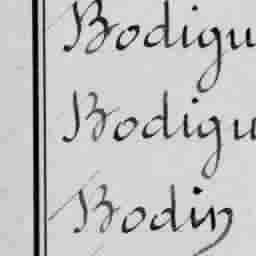 Bodigu
Bodigu
Bodin